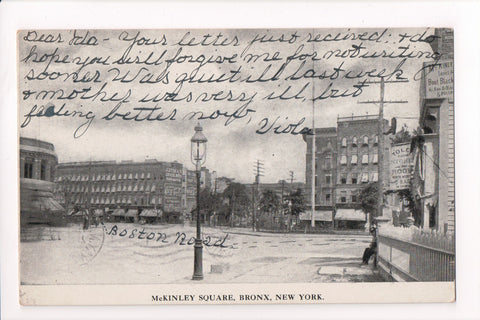 Dear Ida - Your letter just received: & do
hope you will forgive me for not writing
sooner Was quiet ill last week &
& mother was very ill, but
feeling better now
Viola
Boston Road
McKINLEY SQUARE, BRONX, NEW YORK.